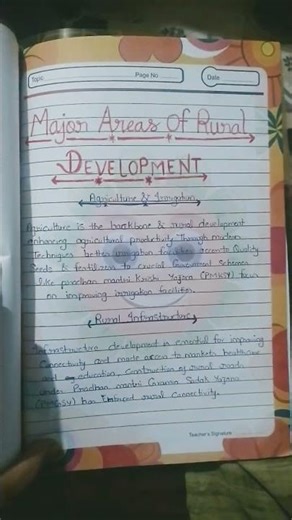 Topic
Page No
Date
Major Areas Of Rural
DEVELOPMENT
Agriculture & Irrigation
Agriculture is the backbone & rural development
enhancing agricultural productivity through modern
Techniques better irrigation facilities access to Quality
Seeds & fertilizers to crucial Government Schemes
like pradhan mantri Krishi Yojna (PMKSY) focus
on improving irrigation facilities.
Rural Infrastructure
Infrastructure development is essential for improving
Connectivity and made access to markets healthcare
and education. Construction of rural roads
under Pradhan mantri Gramin Sadak Yojana
(PMGSY) has rural connectivity.
Teacher's Signature